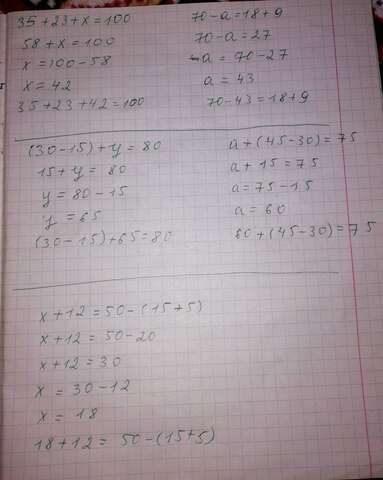 35+23+x=100
58+x=100
x=100-58
x=42
35+23+42=100
70-a=18+9
70-a=27
a=70-27
a=43
70-43=18+9
(30-15)+y=80
15+y=80
y=80-15
y=65
(30-15)+65=80
a+(45-30)=75
a+15=75
a=75-15
a=60
60+(45-30)=75
x+12=50-(15+5)
x+12=50-20
x+12=30
x=30-12
x=18
18+12=50-(15+5)